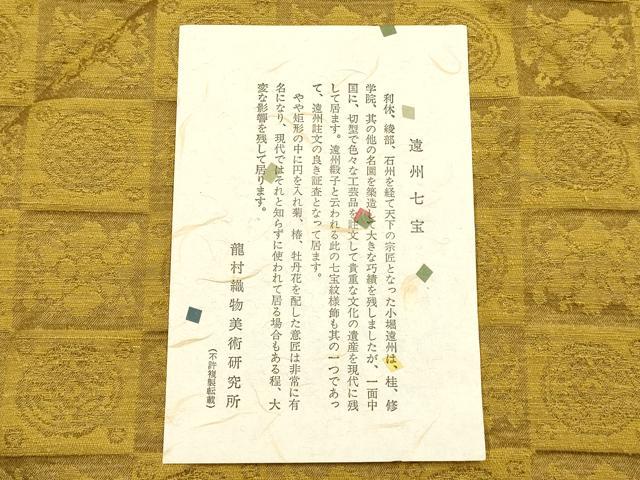 遠州七宝
利休、綾部、石州を経て天下の宗匠となった小堀遠州は、桂、修
学院、其の他の名園を築造して大きな巧績を残しましたが、一面中
国に、切型で色々な工芸品を註文して貴重な文化の遺産を現代に残
して居ます。遠州緞子と云われる此の七宝紋様飾も其の一つであっ
て、遠州註文の良き証査となって居ます。
やや矩形の中に円を入れ菊、椿、牡丹花を配した意匠は非常に有
名になり、現代ではそれと知らずに使われて居る場合もある程、大
変な影響を残して居ります。
龍村織物美術研究所
（不許複製転載）